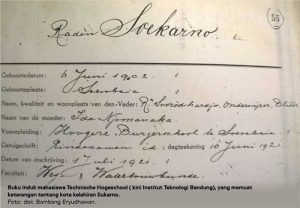 55
Raden Soekarno
Geboortedatum: 6 Juni 1902
Geboorteplaats: Soerabaia
Naam, kwaliteit en woonplaats van den Vader: Rn Soekodihardjo, Onderwijzer, Blitar
Naam van de moeder: Ida Njomanaka
Vooropleiding: Hoogere Burgerschool te Soerabaia
Getuigschrift: dagteekening 10 Juni 1921
Datum van inschrijving: 1 Juli 1921
Faculteit: Weg & Waterbouwkunde
Buku induk mahasiswa Technische Hogeschool ( kini Institut Teknologi Bandung), yang memuat
keterangan tentang kota kelahiran Sukarno.
Foto: dok. Bambang Eryudhawan.